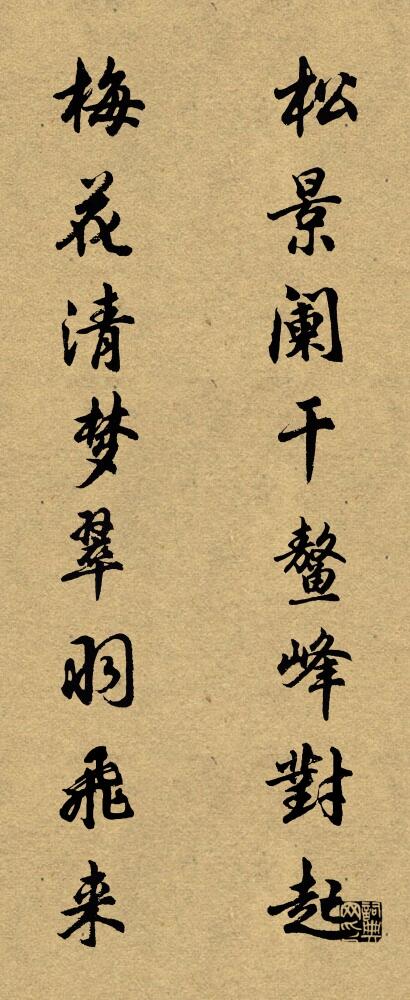 松景阑干鳌峰對起
梅花清梦翠羽飛来